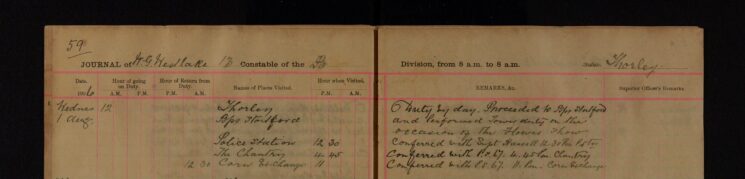 59
JOURNAL of H. G. Westlake 13 Constable of the B Division, from 8 a.m. to 8 a.m. Station Thorley
Date. Hour of going on Duty. Hour of Return from Duty. Names of Places Visited. Hour when Visited. REMARKS, &c. Superior Officer's Remarks
190 A.M. P.M. A.M. P.M. P.M. A.M.
Wednes 12 Thorley Duty by day. Proceeded to Bps Stortford
1 Aug Bps Stortford and performed Town duty on the
occasion of the Flower Show
Police Station 12 30 Conferred with Supt 12.30
The Chantry 4. 45 Conferred with P.S. 67. 4.45 Chantry
12 30 Corn Exchange 11 Conferred with P.S. 67. 11. Corn Exchange